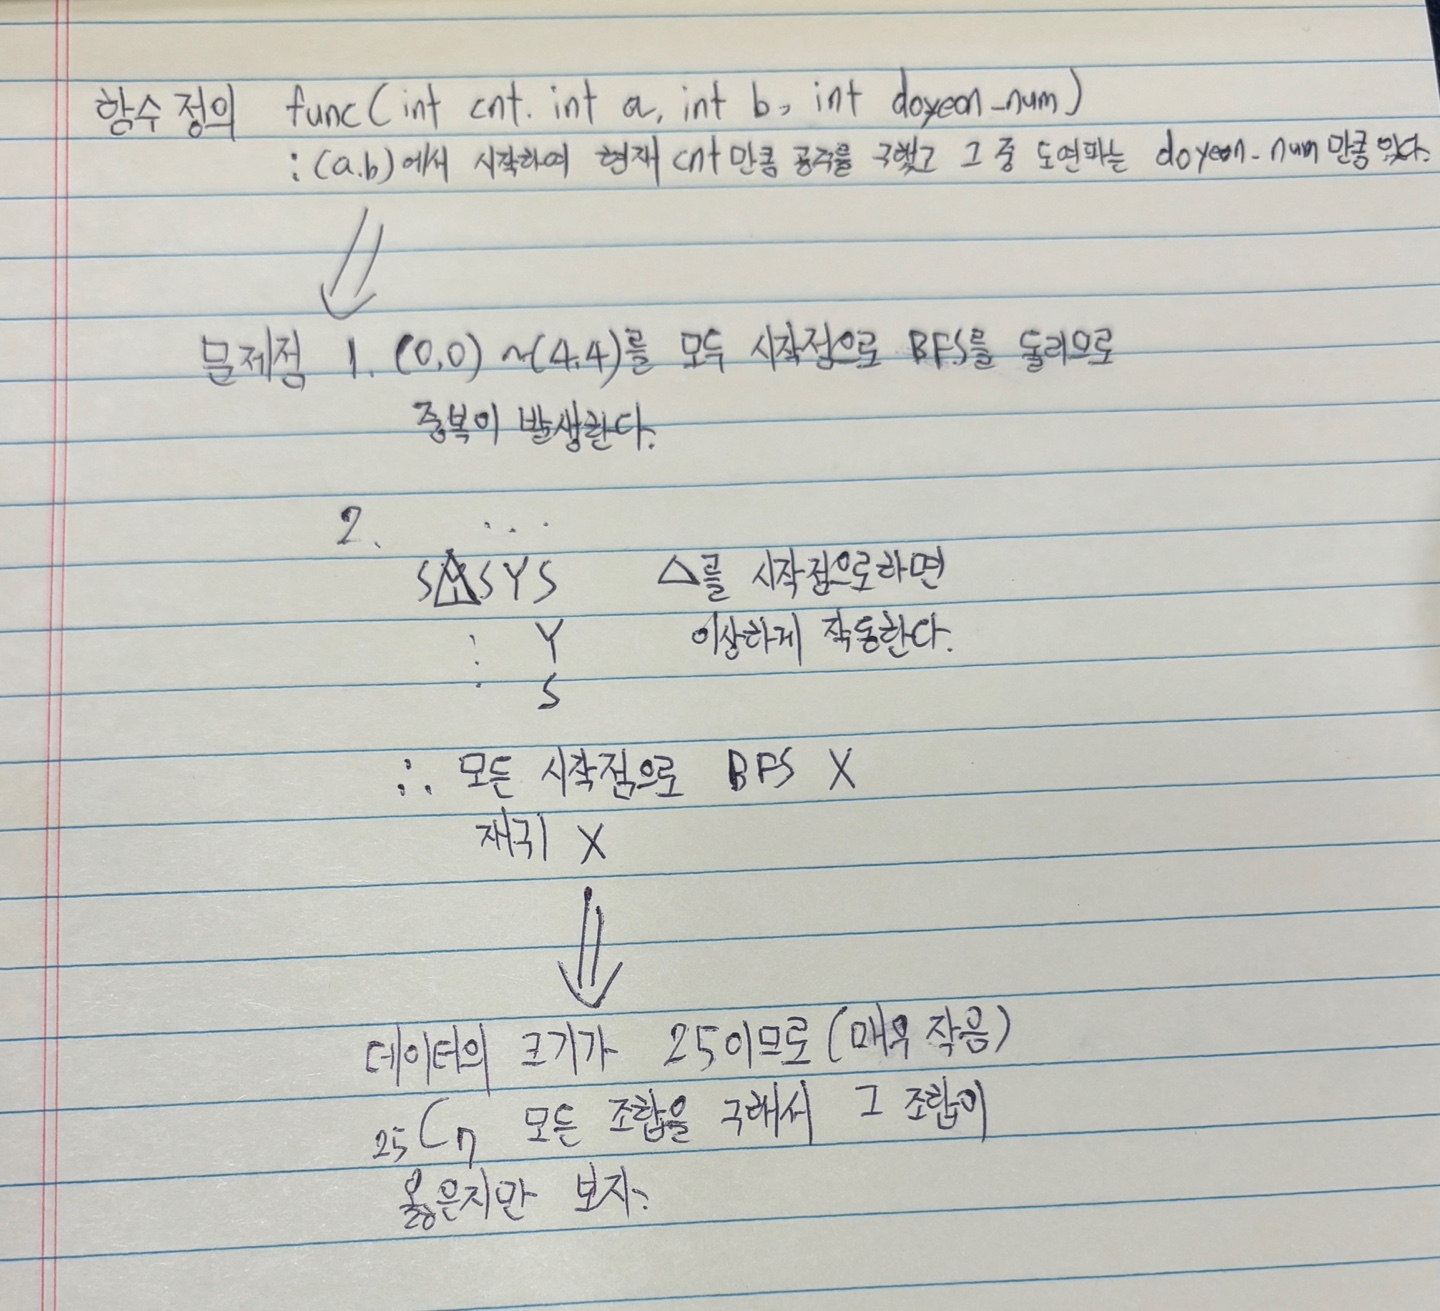 함수 정의 func(int cnt. int a, int b, int doyeon_num)
: (a.b)에서 시작하여 현재 cnt만큼 공주를 구했고 그 중 도연파는 doyeon_num 만큼 있다.
문제점 1. (0,0) ~(4,4)를 모두 시작점으로 BFS를 돌리므로
중복이 발생한다.
2. . . .
SYSYS △를 시작점으로하면
: Y 이상하게 작동한다.
. S
∴ 모든 시작점으로 BFS X
재귀 X
데이터의 크기가 25이므로 (매우 작음)
25C7 모든 조합을 구해서 그 조합이
옳은지만 보자.